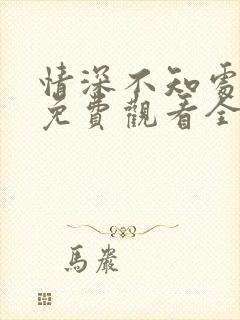 情深不知處
免費觀看全
馬巖